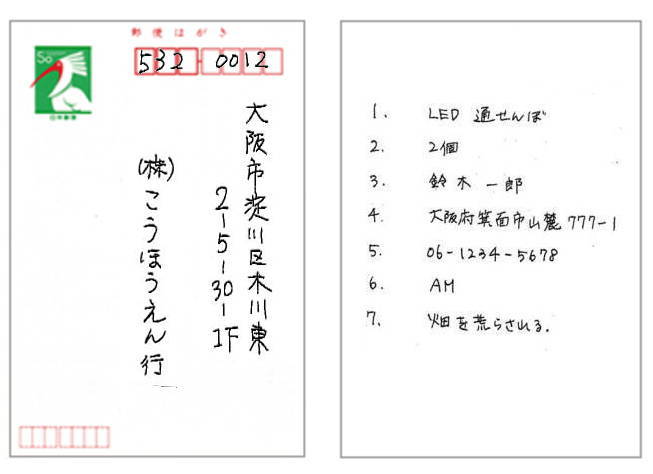 郵便はがき
50
日本郵便
532-0012
大阪市淀川区木川東
2-5-30-1F
(株)こうほうえん行
1. LED 通せんぼ
2. 2個
3. 鈴木 一郎
4. 大阪府箕面市山麓777-1
5. 06-1234-5678
6. AM
7. 畑を荒らされる.